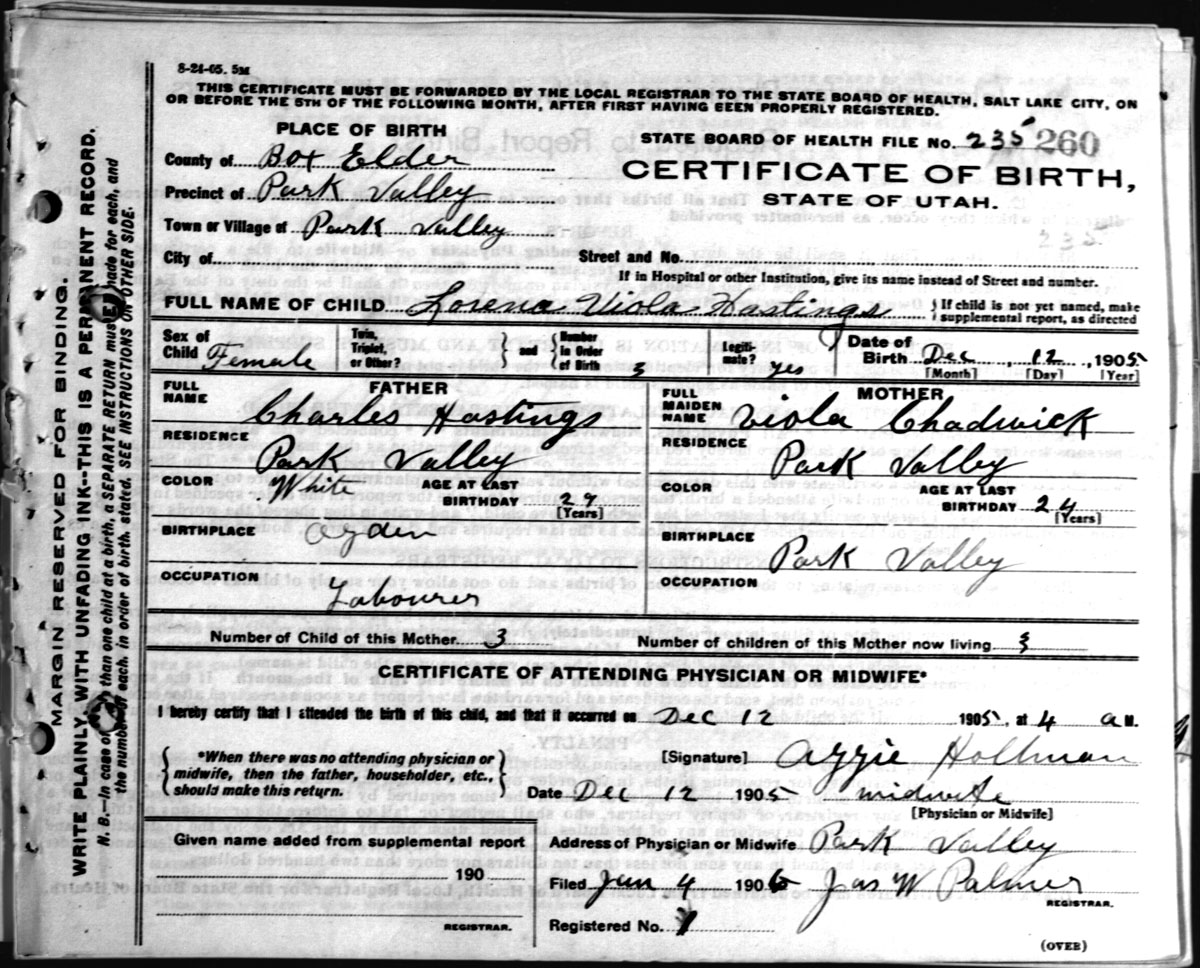 8-24-05. 5M
THIS CERTIFICATE MUST BE FORWARDED BY THE LOCAL REGISTRAR TO THE STATE BOARD OF HEALTH, SALT LAKE CITY, ON
OR BEFORE THE 5TH OF THE FOLLOWING MONTH, AFTER FIRST HAVING BEEN PROPERLY REGISTERED.
PLACE OF BIRTH
County of Box Elder
Precinct of Park Valley
Town or Village of Park Valley
STATE BOARD OF HEALTH FILE No. 235 260
CERTIFICATE OF BIRTH,
STATE OF UTAH.
235
City of Street and No.
If in Hospital or other Institution, give its name instead of Street and number.
FULL NAME OF CHILD Lorena Viola Hastings { If child is not yet named, make
supplemental report, as directed
Sex of Child Female Twin, Triplet, or Other? { and } Number in Order of Birth 3 Legiti- mate? yes Date of Birth Dec 12, 1905
[Month] [Day] [Year]
FATHER
FULL NAME Charles Hastings
RESIDENCE Park Valley
COLOR White AGE AT LAST BIRTHDAY 29
[Years]
BIRTHPLACE Ogden
OCCUPATION Labourer
MOTHER
FULL MAIDEN NAME Viola Chadwick
RESIDENCE Park Valley
COLOR AGE AT LAST BIRTHDAY 24
[Years]
BIRTHPLACE Park Valley
OCCUPATION
Number of Child of this Mother 3 Number of children of this Mother now living 3
CERTIFICATE OF ATTENDING PHYSICIAN OR MIDWIFE*
I hereby certify that I attended the birth of this child, and that it occurred on Dec 12 1905, at 4 a M.
{ *When there was no attending physician or
midwife, then the father, householder, etc.,
should make this return. }
[Signature] Aggie Hollman
Date Dec 12 1905 midwife
[Physician or Midwife]
Given name added from supplemental report
190
REGISTRAR.
Address of Physician or Midwife Park Valley
Filed Jan 4 1906 Jas W Palmer
REGISTRAR.
Registered No. 1
(OVER)
MARGIN RESERVED FOR BINDING.
WRITE PLAINLY, WITH UNFADING INK--THIS IS A PERMANENT RECORD.
N. B.—In case of more than one child at a birth, a SEPARATE RETURN must be made for each, and
the number of each, in order of birth, stated. SEE INSTRUCTIONS ON OTHER SIDE.